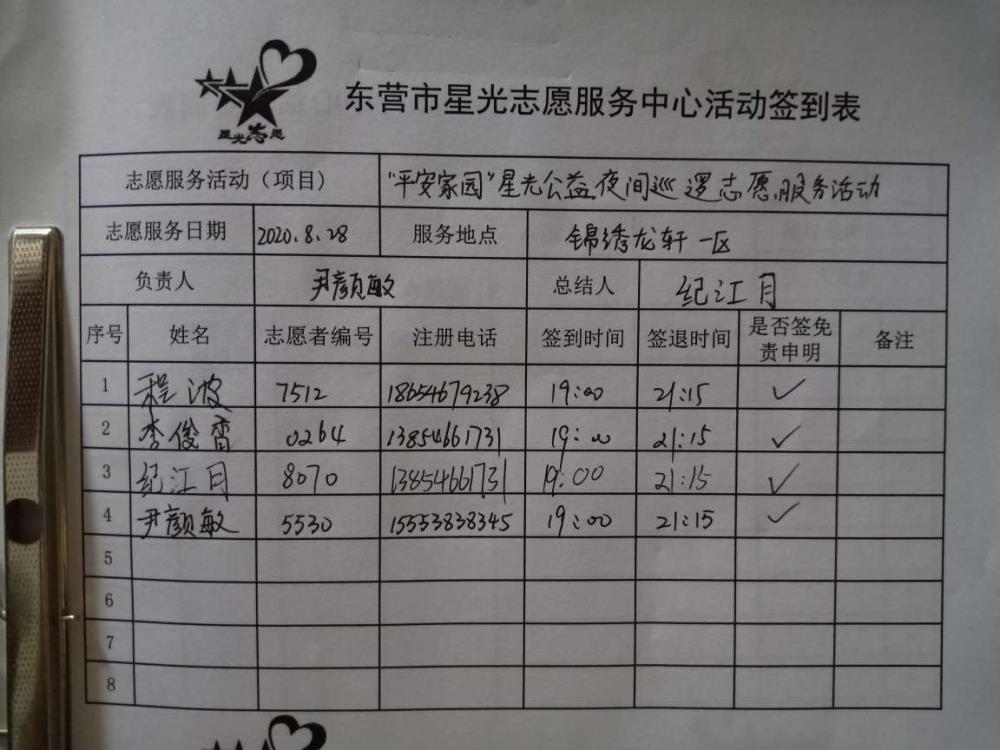 星光志愿
东营市星光志愿服务中心活动签到表
志愿服务活动（项目） “平安家园”星光公益夜间巡逻志愿服务活动
志愿服务日期 2020.8.28 服务地点 锦绣龙轩一区
负责人 尹颜敏 总结人 纪江月
序号 姓名 志愿者编号 注册电话 签到时间 签退时间 是否签免责申明 备注
1 程波 7512 18654679238 19:00 21:15 ✓
2 李俊香 0264 13854661731 19:00 21:15 ✓
3 纪江月 8070 13854661731 19:00 21:15 ✓
4 尹颜敏 5530 15553838345 19:00 21:15 ✓
5
6
7
8